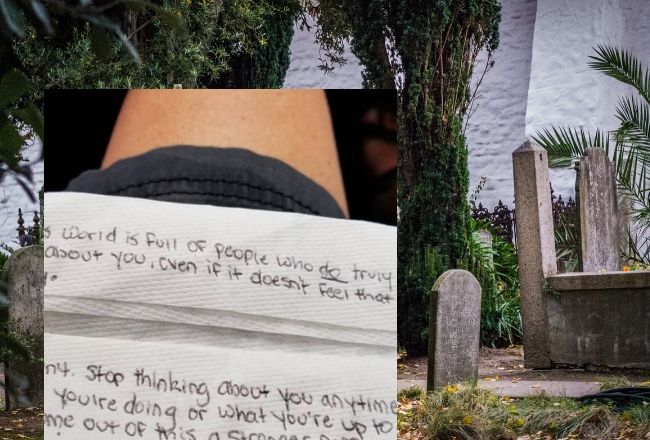 s world is full of people who do truly
about you, even if it doesn't feel that
ny. Stop thinking about you anytime
you're doing or what you're up to
me out of this a stronger